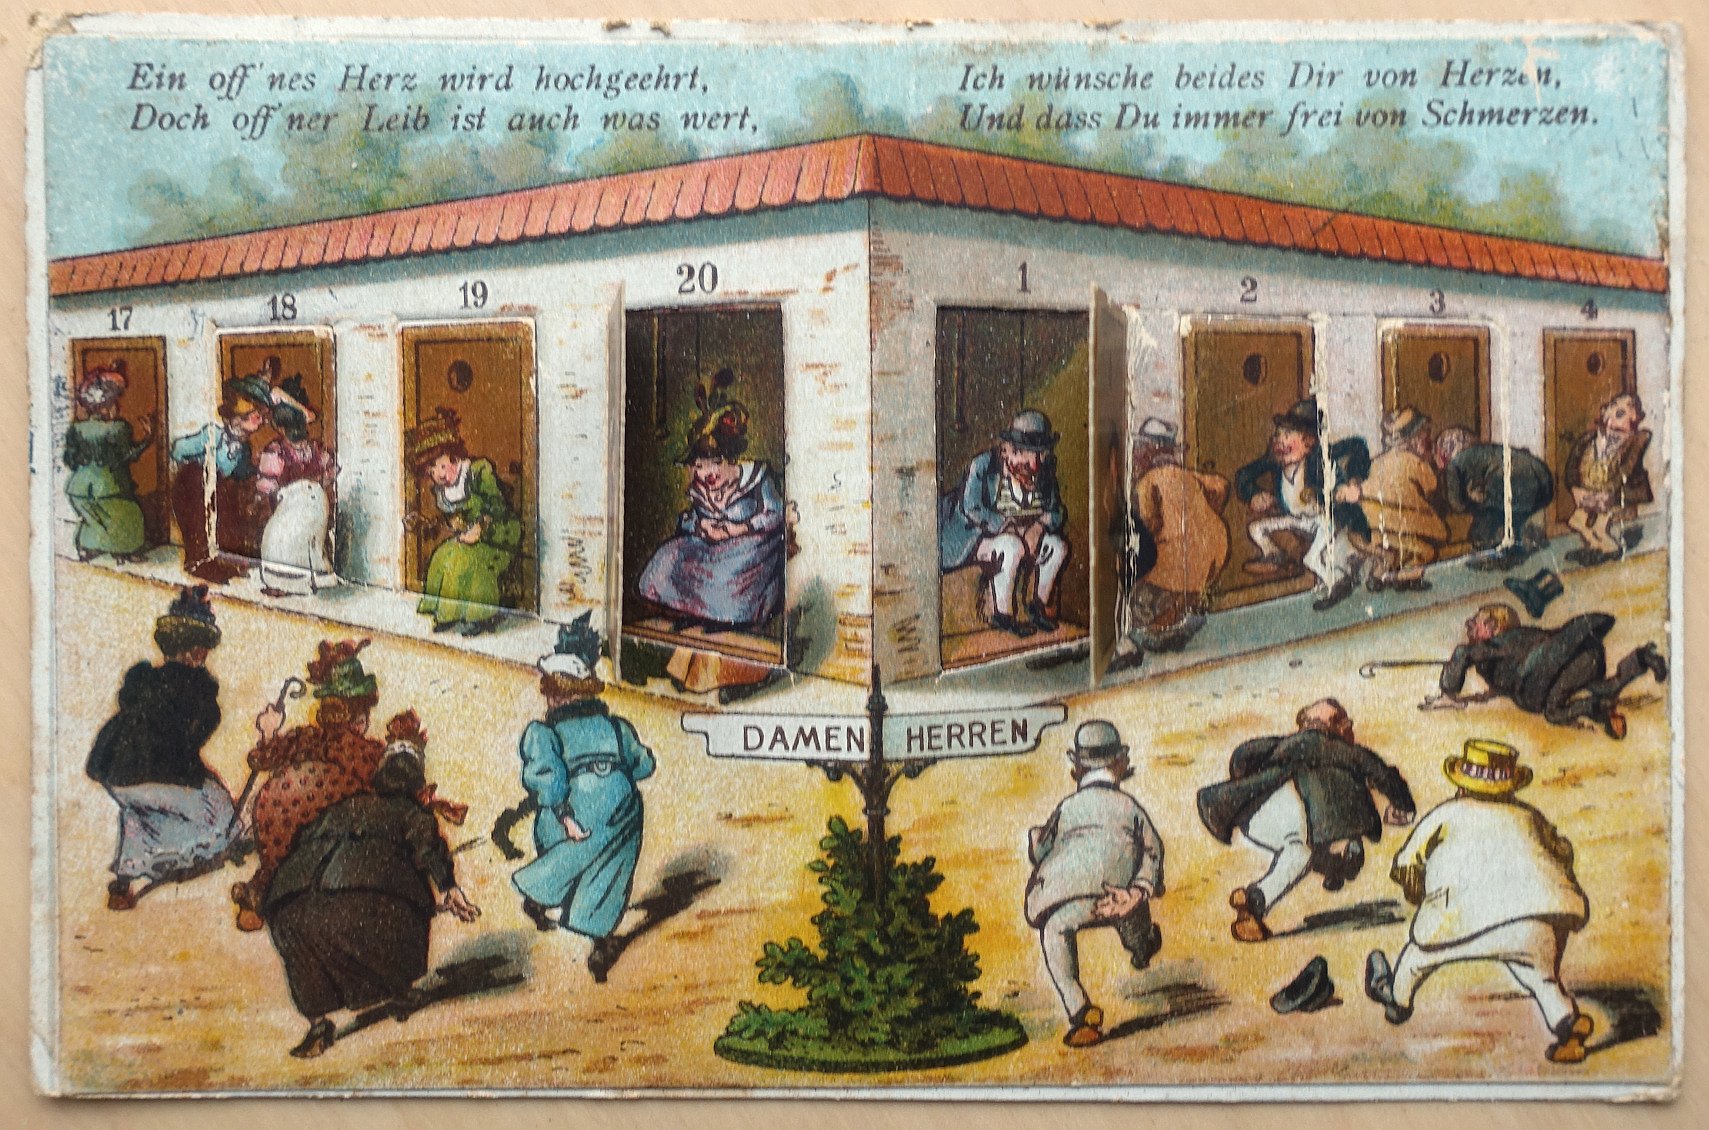 Ein off'nes Herz wird hochgeehrt,
Doch off'ner Leib ist auch was wert,
Ich wünsche beides Dir von Herzen,
Und dass Du immer frei von Schmerzen.
17
18
19
20
1
2
3
4
DAMEN
HERREN